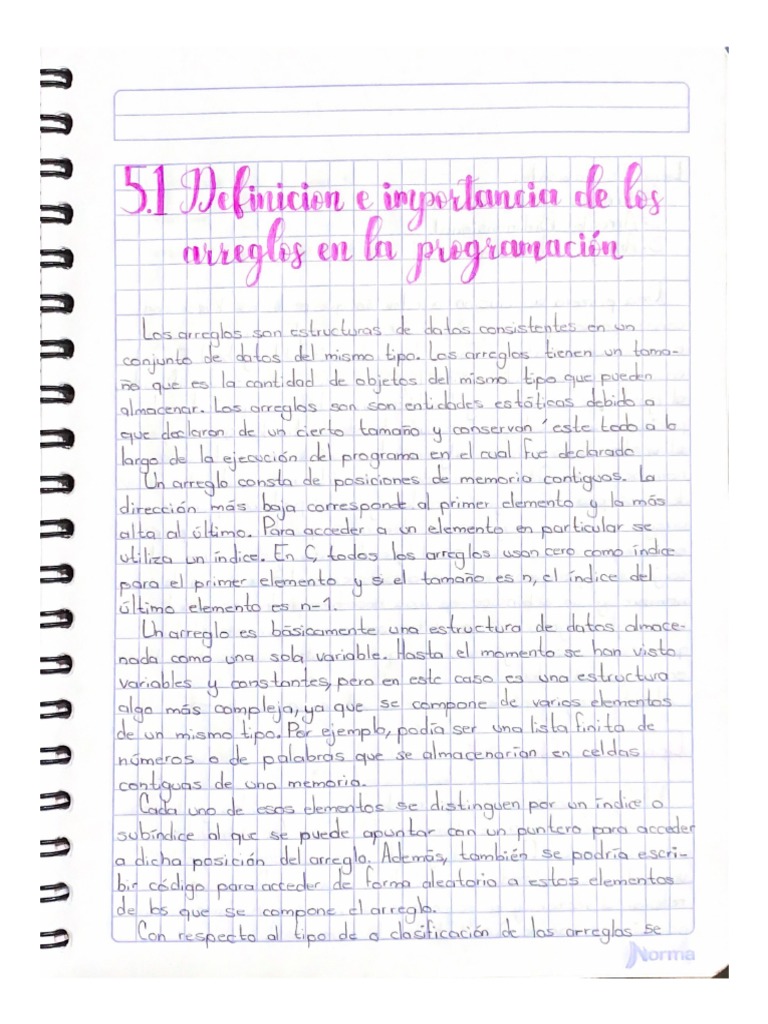 5.1 Definicion e importancia de los
arreglos en la programación
Los arreglos son estructuras de datos consistentes en un
conjunto de datos del mismo tipo. Los arreglos tienen un tama-
ño que es la cantidad de objetos del mismo tipo que pueden
almacenar. Los arreglos son son entidades estáticas debido a
que declaran de un cierto tamaño y conservan éste todo a lo
largo de la ejecución del programa en el cual fue declarado
Un arreglo consta de posiciones de memoria contiguas. La
dirección más baja corresponde al primer elemento y la más
alta al último. Para acceder a un elemento en particular se
utiliza un índice. En C, todos los arreglos usan cero como índice
para el primer elemento y si el tamaño es n, el índice del
último elemento es n-1.
Un arreglo es básicamente una estructura de datos almace-
nada como una sola variable. Hasta el momento se han visto
variables y constantes, pero en este caso es una estructura
algo más compleja, ya que se compone de varios elementos
de un mismo tipo. Por ejemplo, podía ser una lista finita de
números o de palabras que se almacenarían en celdas
contiguas de una memoria.
Cada uno de esos elementos se distinguen por un índice o
subíndice al que se puede apuntar con un puntero para acceder
a dicha posición del arreglo. Además, también se podría escri-
bir código para acceder de forma aleatorio a estos elementos
de los que se compone el arreglo.
Con respecto al tipo de o clasificación de los arreglos se
Norma